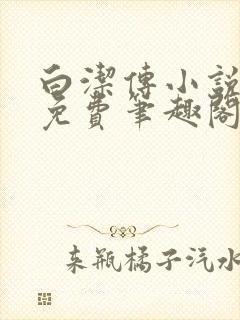 白潔傳小説
免費筆趣閣
来瓶橘子汽水